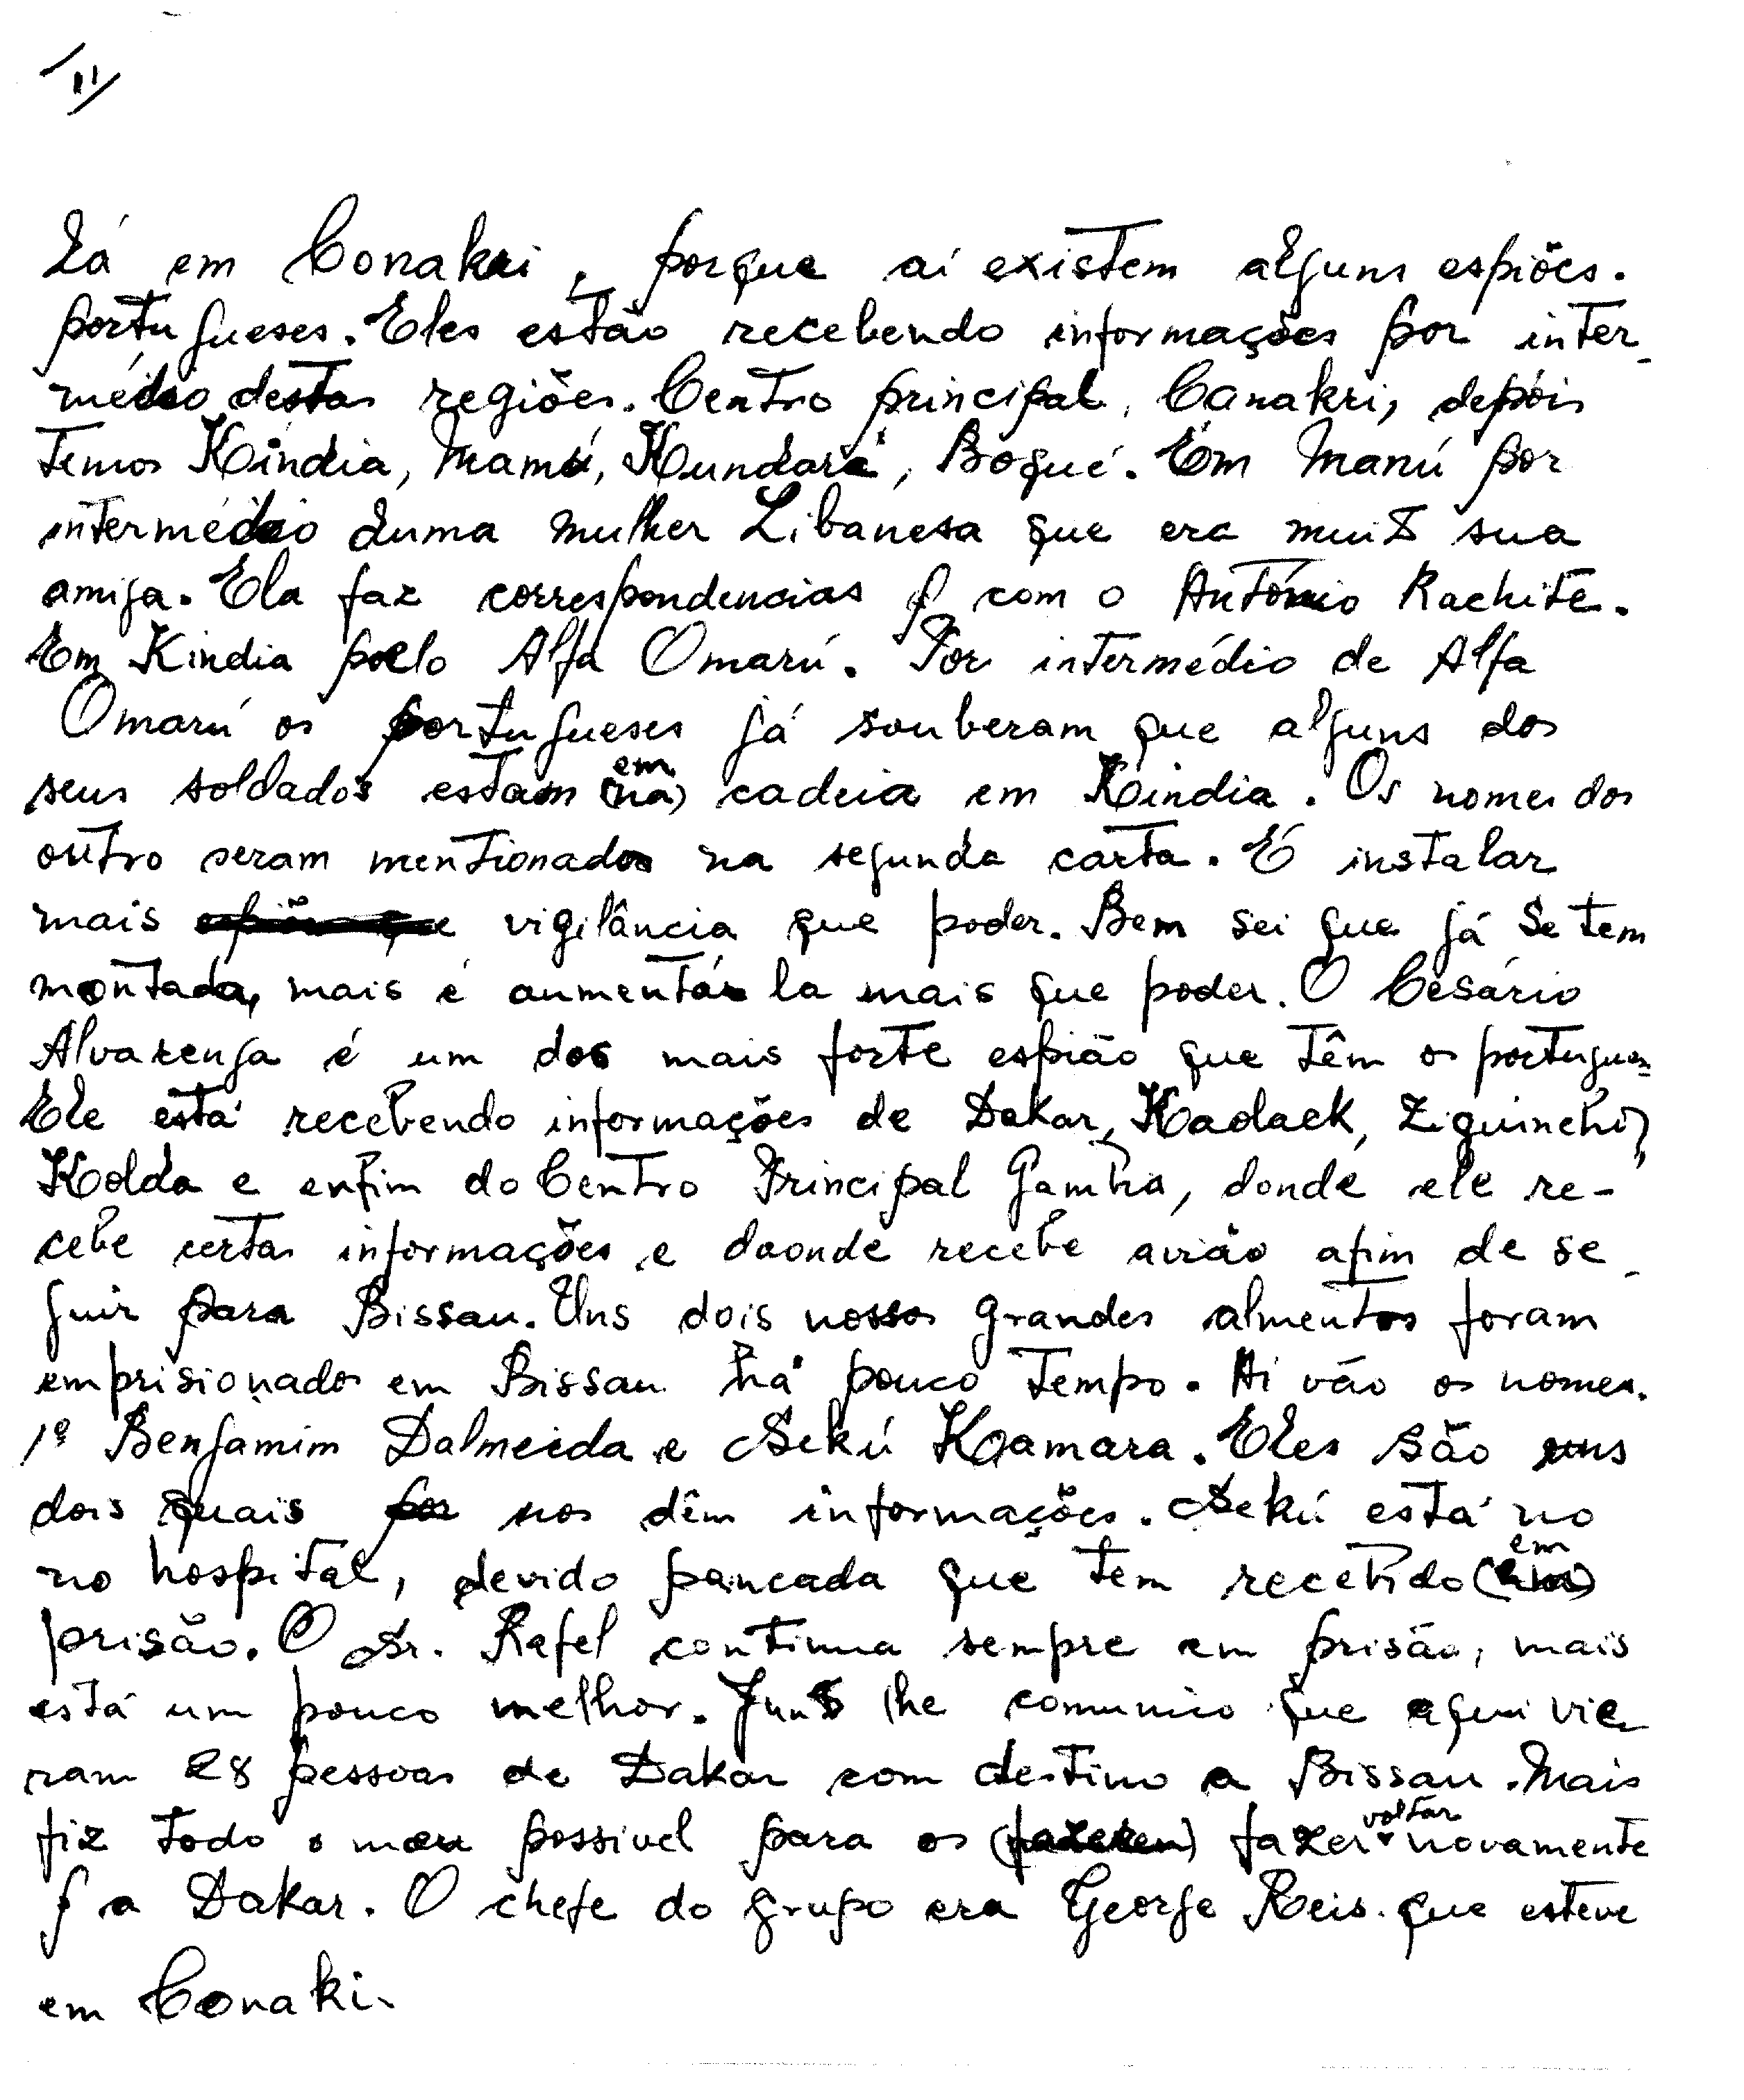 II
Lá em Conakri, porque aí existem alguns espiões.
portugueses. Eles estão recebendo informações por inter-
médio destas regiões. Centro principal, Canakri, depóis
temos Kíndia, Mamú, Kundará, Boqué. Em Manú por
intermédio duma mulher Libanesa que era muito sua
amiga. Ela faz correspondencias com o António Rachite.
Em Kindia pelo Alfa Omarú. Por intermédio de Alfa
Omarú os portugueses já souberam que alguns dos
seus soldados estam (na) em cadeia em Kíndia. Os nomes dos
outro seram mentionados na segunda carta. É instalar
mais vigilância que poder. Bem sei que já se tem
montada, mais é aumentár la mais que poder. O Cesário
Alvarenga é um dos mais forte espião que têm os portugues
Ele está recebendo informações de Dakar, Kaolack, Ziguinchó,
Kolda e enfim do Centro Principal Gambia, donde ele re-
cebe certas informações e daonde recebe avião afim de se-
guir para Bissau. Uns dois nossos grandes almentos foram
emprisionados em Bissau há pouco tempo. Ai vão os nomes.
1º Benjamim Dalmeida e Sekú Kamara. Eles são uns
dois quais por nos dêm informações. Sekú está no
no hospital, devido pancada que tem recebido em
prisão. O Sr. Rafel continua sempre em prisão, mais
está um pouco melhor. Junto lhe comunico que aqui vie-
ram 28 pessoas de Dakar com destino a Bissau. Mais
fiz todo o meu possivel para os (fazeren) fazer voltar novamente
a Dakar. O chefe do grupo era George Reis. que esteve
em Conaki.